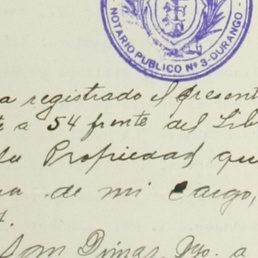 NOTARIO PUBLICO Nº 3-DURANGO.
a registrado el presen
e a 54 frente del Lib
la Propiedad que
de mi cargo,
San Dimas, Dgo. a